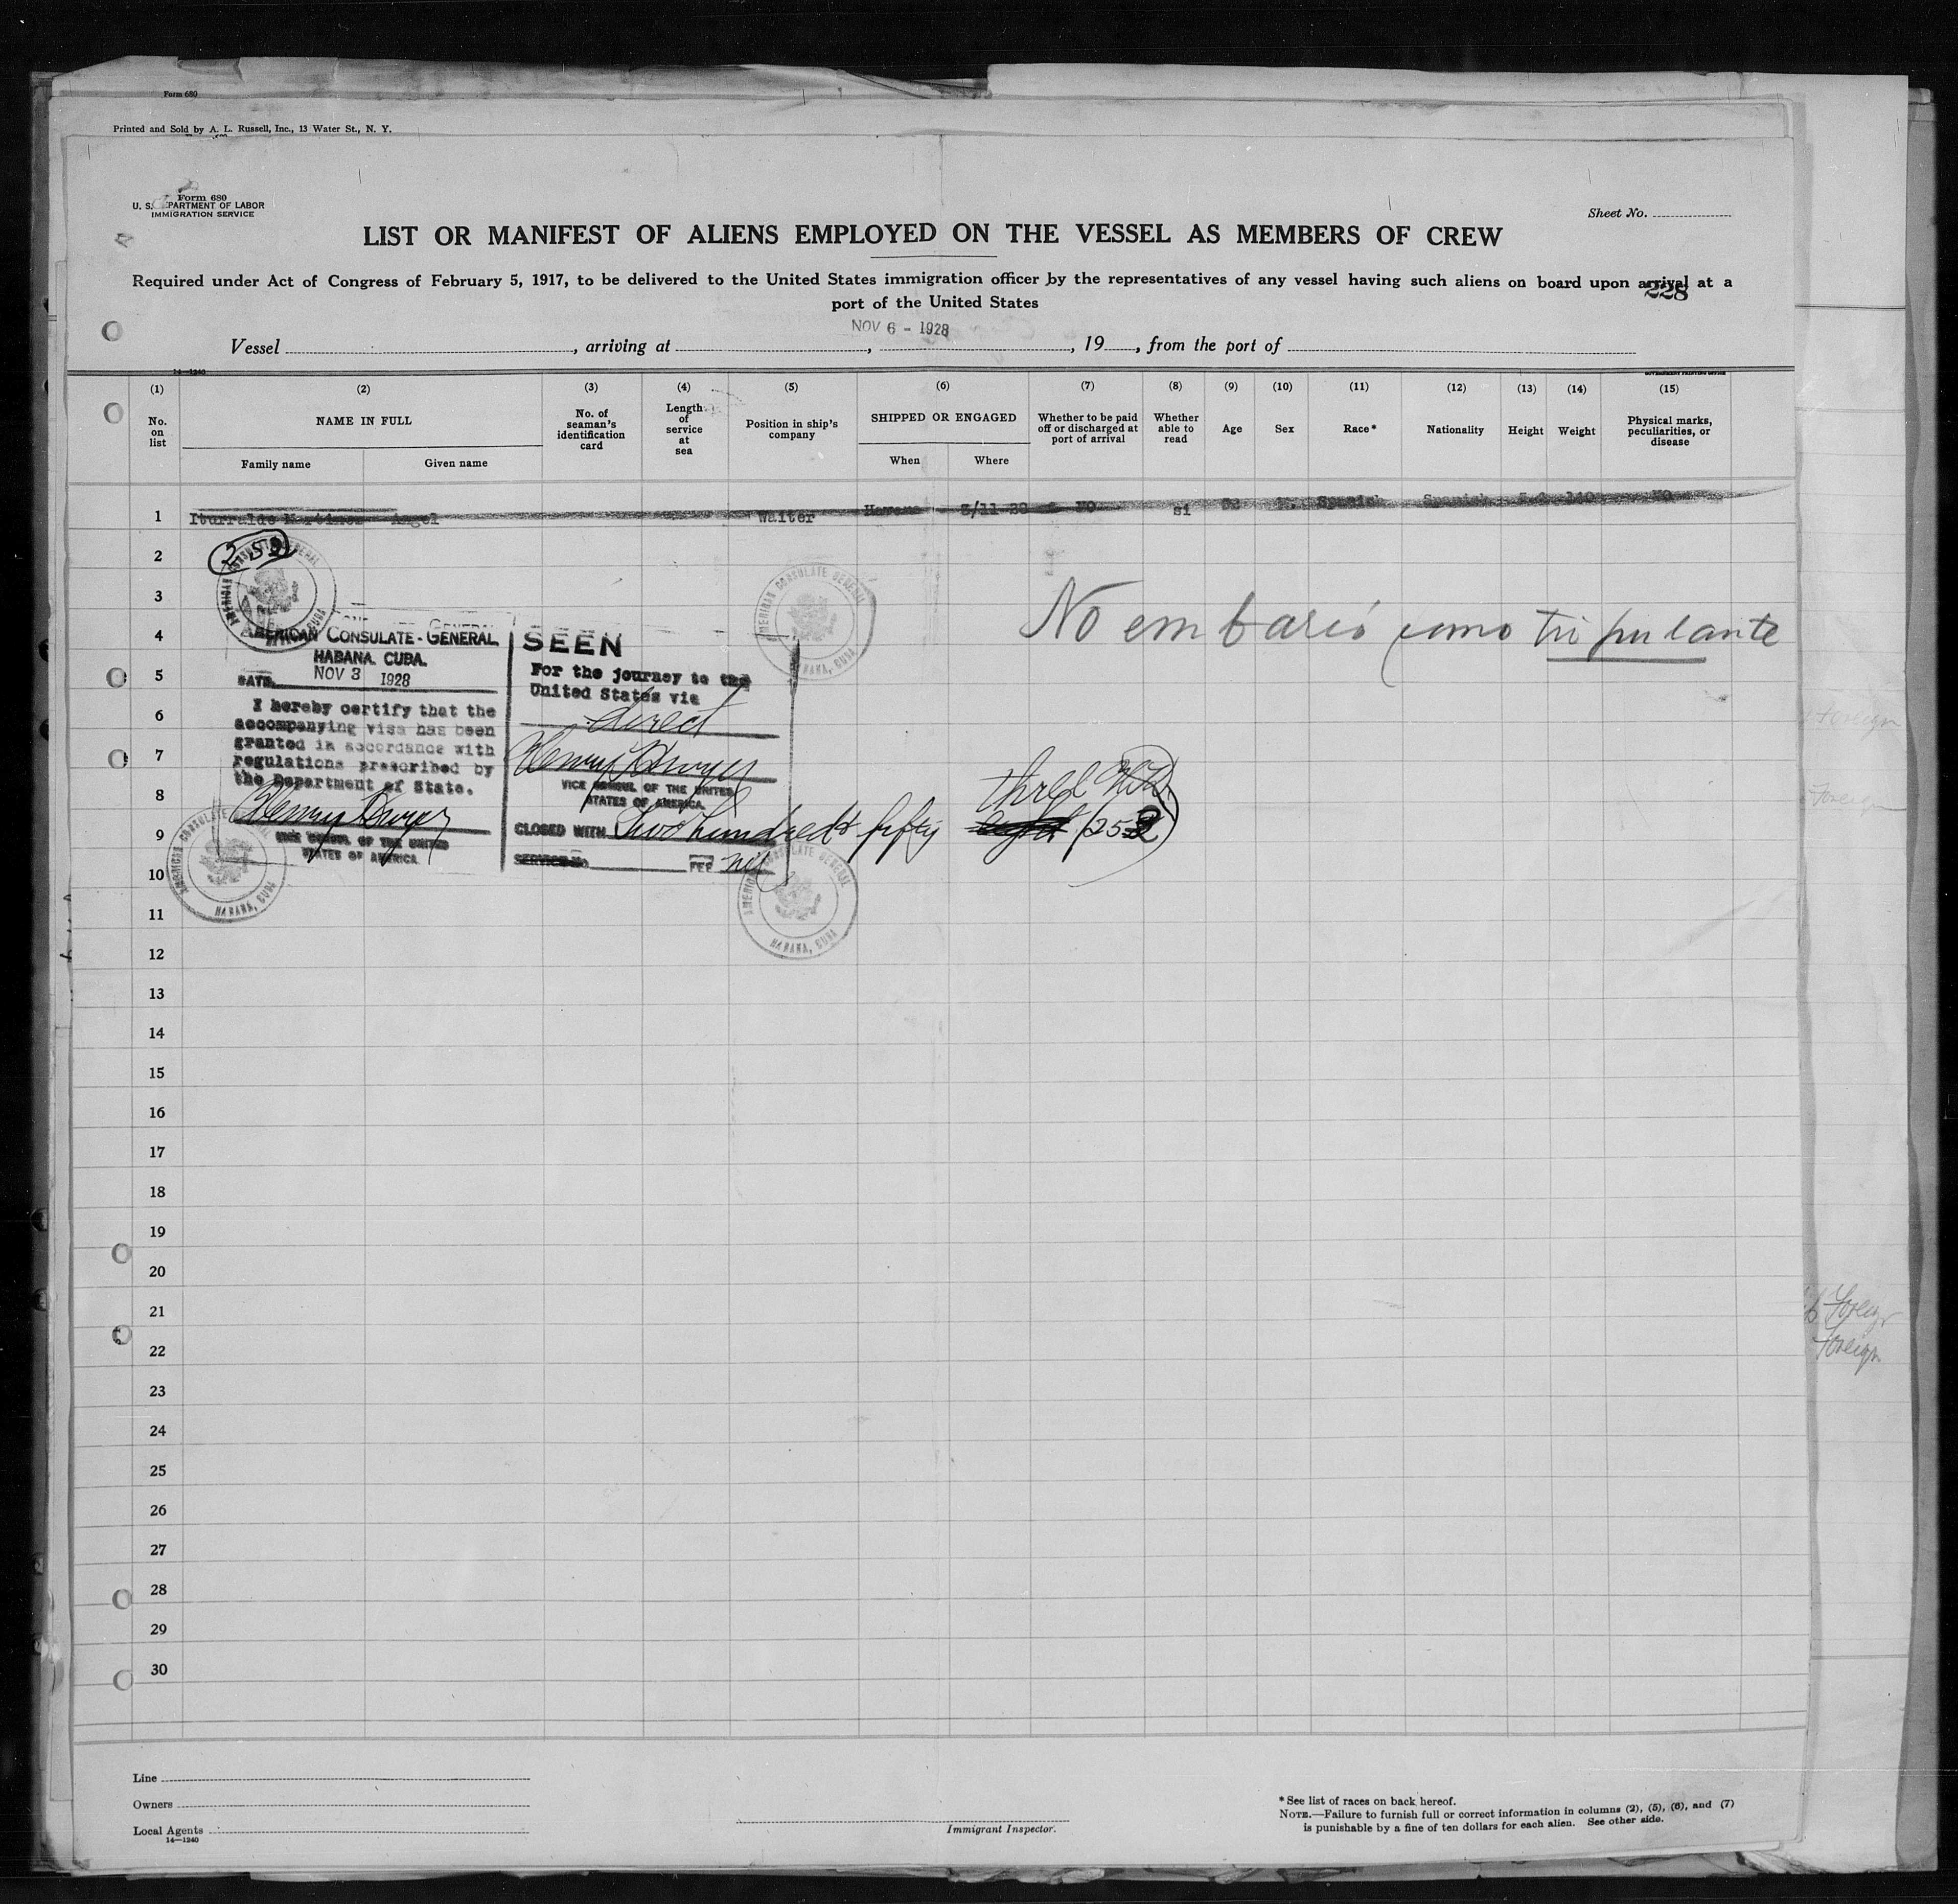 Form 680
Printed and Sold by A. L. Russell, Inc., 13 Water St., N. Y.
Form 680
U. S. DEPARTMENT OF LABOR
IMMIGRATION SERVICE
Sheet No.
LIST OR MANIFEST OF ALIENS EMPLOYED ON THE VESSEL AS MEMBERS OF CREW
Required under Act of Congress of February 5, 1917, to be delivered to the United States immigration officer by the representatives of any vessel having such aliens on board upon arrival at a
port of the United States
228
NOV 6 - 1928
Vessel , arriving at , , 19 , from the port of
14—1240
GOVERNMENT PRINTING OFFICE
(1) (2) (3) (4) (5) (6) (7) (8) (9) (10) (11) (12) (13) (14) (15)
No. on list
NAME IN FULL
Family name
Given name
No. of seaman's identification card
Length of service at sea
Position in ship's company
SHIPPED OR ENGAGED
When
Where
Whether to be paid off or discharged at port of arrival
Whether able to read
Age
Sex
Race*
Nationality
Height
Weight
Physical marks, peculiarities, or disease
1 Iturralde Martinez Angel Waiter Havana 3/11 28 NO si M. Spanish Spanish 140 NO
2
253
3
4
5
6
7
8
9
10
11
12
13
14
15
16
17
18
19
20
21
22
23
24
25
26
27
28
29
30
AMERICAN CONSULATE GENERAL
HABANA, CUBA
AMERICAN CONSULATE-GENERAL,
HABANA. CUBA.
DATE NOV 3 1928
I hereby certify that the
accompanying visa has been
granted in accordance with
regulations prescribed by
the Department of State.
Henry Dwyer
VICE CONSUL OF THE UNITED
STATES OF AMERICA.
SEEN
For the journey to the
United States via
direct
Henry Dwyer
VICE CONSUL OF THE UNITED
STATES OF AMERICA.
CLOSED WITH Two hundred & fifty three (253)
SERVICE No FEE nil
AMERICAN CONSULATE GENERAL
HABANA, CUBA
AMERICAN CONSULATE GENERAL
HABANA, CUBA
AMERICAN CONSULATE GENERAL
HABANA, CUBA
No embarcó como tripulante
Foreign
Foreign
Foreign
Foreign
Line
Owners
Local Agents
14—1240
Immigrant Inspector.
* See list of races on back hereof.
NOTE.—Failure to furnish full or correct information in columns (2), (5), (6), and (7)
is punishable by a fine of ten dollars for each alien. See other side.